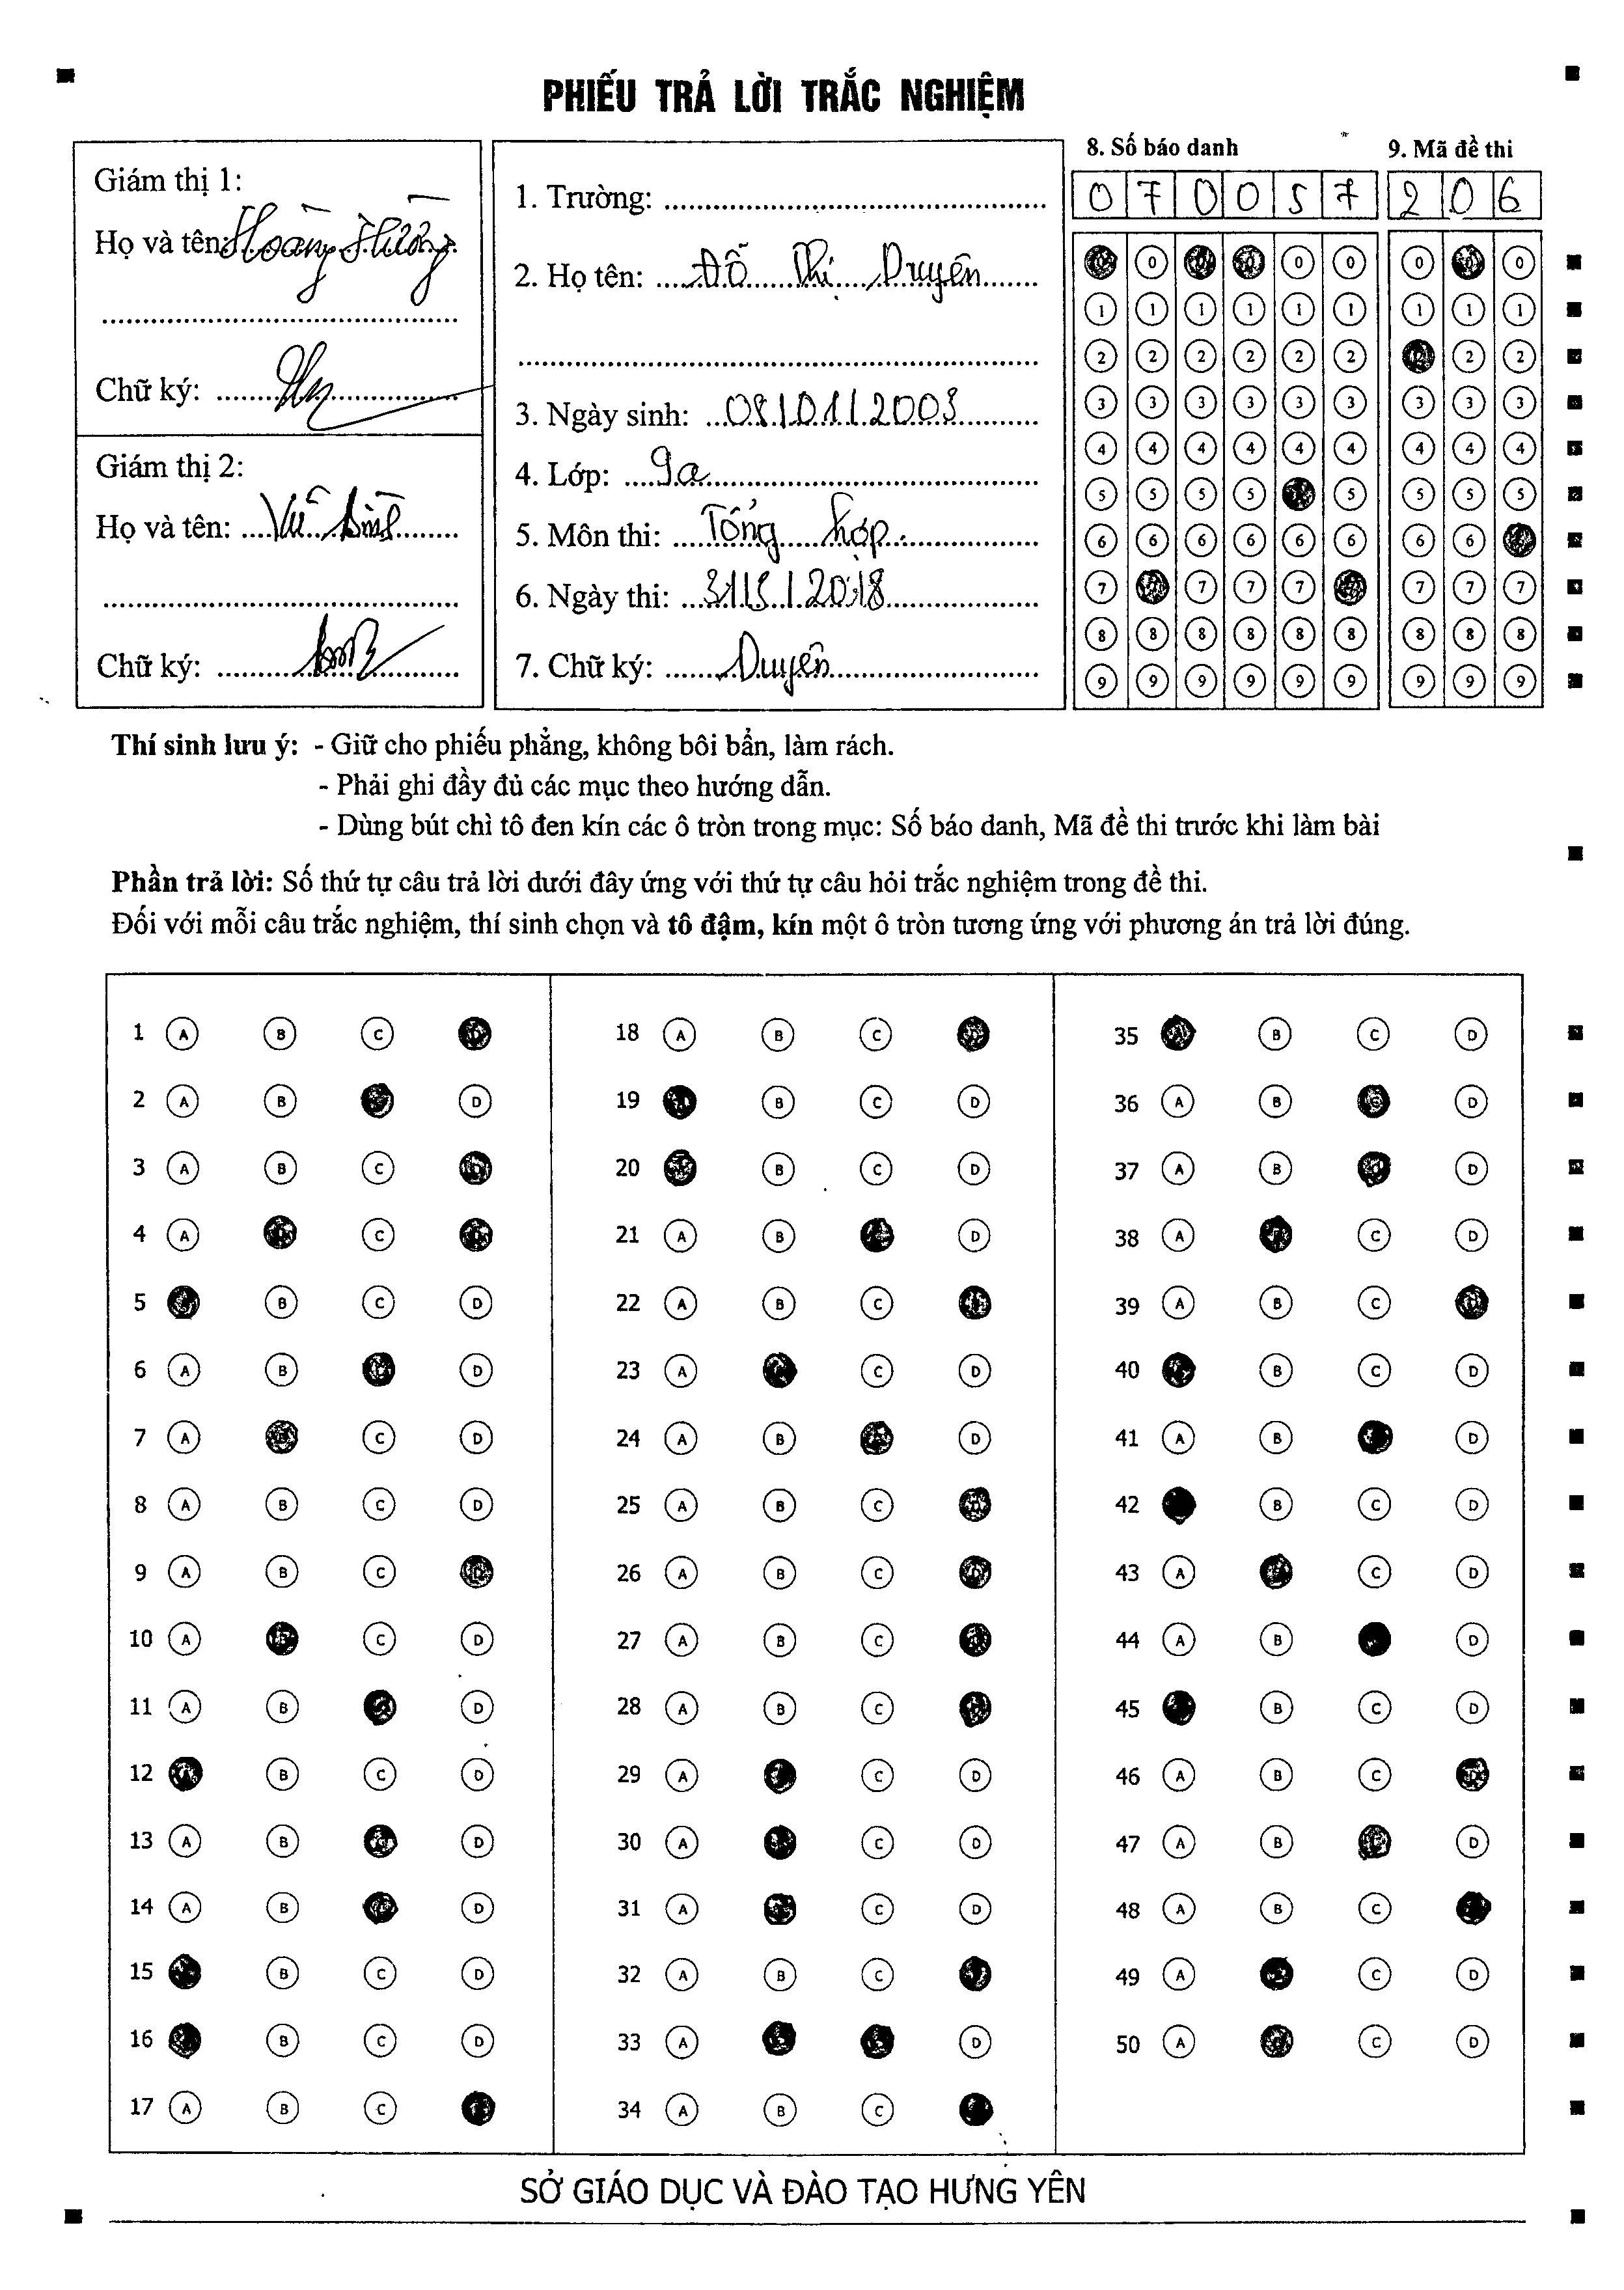 PHIẾU TRẢ LỜI TRẮC NGHIỆM
Giám thị 1:
Họ và tên: Hoàng Hường
Chữ ký:
Giám thị 2:
Họ và tên: Vũ Bình
Chữ ký:
1. Trường:
2. Họ tên: Đỗ Thị Duyên
3. Ngày sinh: 08/01/2003
4. Lớp: 9a
5. Môn thi: Tổng hợp
6. Ngày thi: 31/5/2018
7. Chữ ký: Duyên
8. Số báo danh
070057
9. Mã đề thi
206
0 0 0 0 0
1 1 1 1 1 1 1 1 1
2 2 2 2 2 2 2 2
3 3 3 3 3 3 3 3 3
4 4 4 4 4 4 4 4 4
5 5 5 5 5 5 5 5
6 6 6 6 6 6 6 6
7 7 7 7 7 7 7
8 8 8 8 8 8 8 8 8
9 9 9 9 9 9 9 9 9
Thí sinh lưu ý: - Giữ cho phiếu phẳng, không bôi bẩn, làm rách.
- Phải ghi đầy đủ các mục theo hướng dẫn.
- Dùng bút chì tô đen kín các ô tròn trong mục: Số báo danh, Mã đề thi trước khi làm bài
Phần trả lời: Số thứ tự câu trả lời dưới đây ứng với thứ tự câu hỏi trắc nghiệm trong đề thi.
Đối với mỗi câu trắc nghiệm, thí sinh chọn và tô đậm, kín một ô tròn tương ứng với phương án trả lời đúng.
1 A B C D
2 A B D
3 A B C D
4 A C
5 B C D
6 A B D
7 A B C D
8 A B C D
9 A B C D
10 A B C D
11 A B D
12 A B C D
13 A B D
14 A B D
15 B C D
16 B C D
17 A B C
18 A B C D
19 B C D
20 B C D
21 A B D
22 A B C
23 A C D
24 A B D
25 A B C
26 A B C D
27 A B C
28 A B C
29 A C D
30 A C D
31 A C D
32 A B C
33 A D
34 A B C
35 B C D
36 A B D
37 A B D
38 A C D
39 A B C D
40 B C D
41 A B D
42 B C D
43 A C D
44 A B D
45 B C D
46 A B C D
47 A B C D
48 A B C
49 A C D
50 A C D
SỞ GIÁO DỤC VÀ ĐÀO TẠO HƯNG YÊN